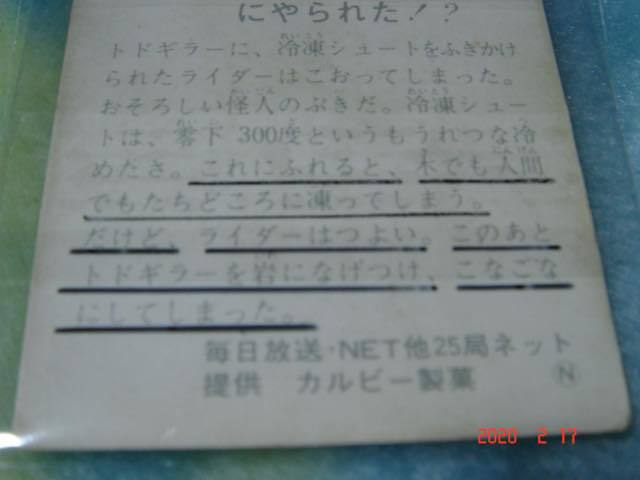 にやられた！？
トドギラーに、冷凍シュートをふきかけ
られたライダーはこおってしまった。
おそろしい怪人のぶきだ。冷凍シュー
トは、零下300度というもうれつな冷
めださ。これにふれると、木でも人間
でもたちどころに凍ってしまう。
だけど、ライダーはつよい。このあと
トドギラーを岩になげつけ、こなごな
にしてしまった。
毎日放送・NET他25局ネット
提供　カルビー製菓　Ⓝ
2020 2 17